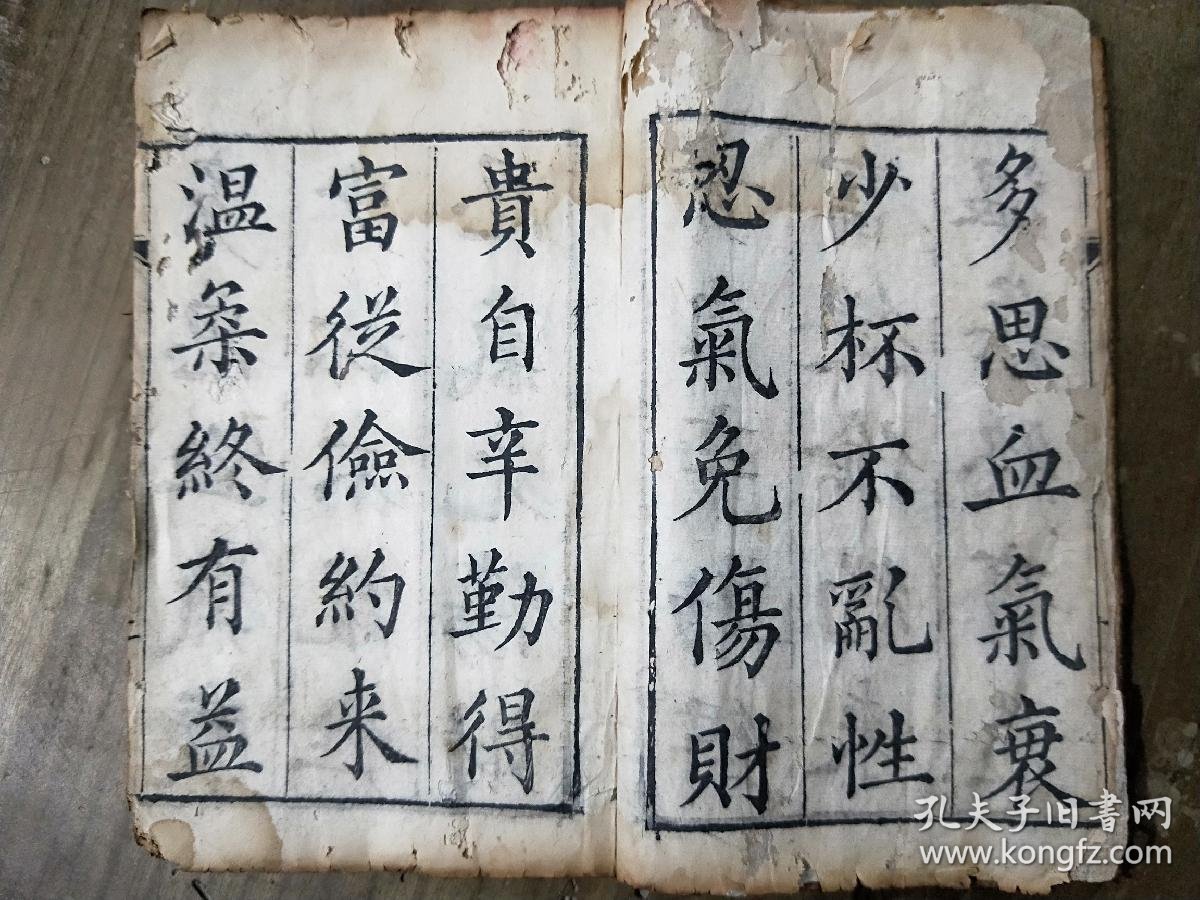 多思血氣衰
少杯不亂性
忍氣免傷財
貴自辛勤得
富從儉約来
温柔終有益
孔夫子旧書网
www.kongfz.com